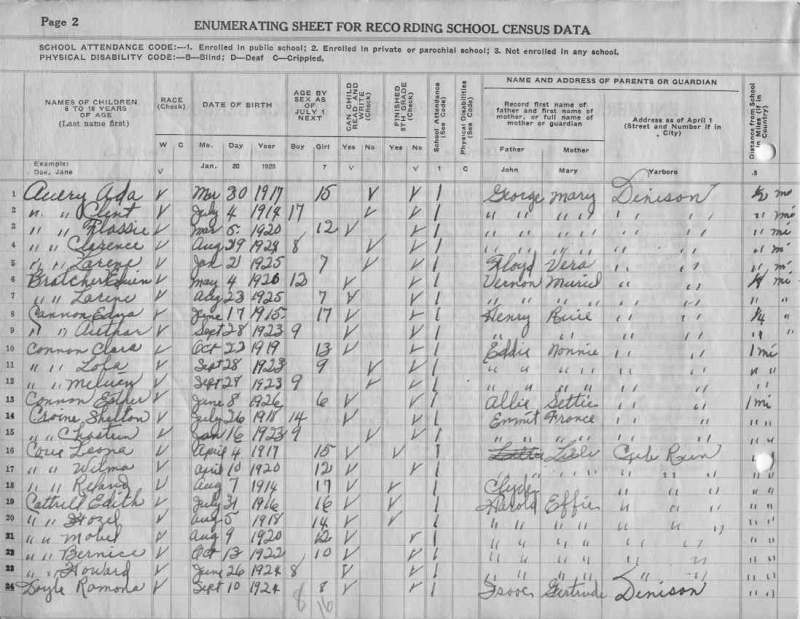 Page 2
ENUMERATING SHEET FOR RECORDING SCHOOL CENSUS DATA
SCHOOL ATTENDANCE CODE:—1. Enrolled in public school; 2. Enrolled in private or parochial school; 3. Not enrolled in any school.
PHYSICAL DISABILITY CODE:—B—Blind; D—Deaf C—Crippled.
NAMES OF CHILDREN 6 TO 18 YEARS OF AGE (Last name first)
RACE (Check) W C
DATE OF BIRTH Mo. Day Year
AGE BY SEX AS OF JULY 1 NEXT Boy Girl
CAN CHILD READ AND WRITE (Check) Yes No
FINISHED 8TH GRADE (Check) Yes No
School Attendance (See Code)
Physical Disabilities (See Code)
NAME AND ADDRESS OF PARENTS OR GUARDIAN
Record first name of father and first name of mother, or full name of mother or guardian
Father Mother
Address as of April 1 (Street and Number if in City)
Distance from School in Miles (if in Country)
Example: Doe, Jane V Jan. 20 1928 7 V V 1 C John Mary Yarboro .5
1 Avery Ada V Mar 30 1917 15 V V 1 George Mary Denison ½ mi
2 " " Clint V July 4 1914 17 V V 1 " " " " " " " mi
3 " " Flossie V Mar 5 1920 12 V V 1 " " " " " " " mi
4 " " Clarence V Aug 29 1923 8 V V 1 " " " " " " " mi
5 " " Larene V Jan 21 1925 7 V V 1 Floyd Vera " " " mi
6 V May 4 1920 12 V V 1 Vernon Muriel " " mi
7 " " Larene V Aug 23 1925 7 V V 1 " " " " " " "
8 Cannon Edna V June 17 1915 17 V V 1 Henry " " ¼ "
9 " " Authar V Sept 28 1923 9 V V 1 " " " " " "
10 Connon Clara V Oct 22 1919 13 V V 1 Eddie Nonnie " " 1 mi
11 " " V Sept 28 1923 9 V V 1 " " " " " " " "
12 " " V Sept 28 1923 9 V V 1 " " " " " " " "
13 Connon Esther V June 8 1926 6 V V 1 Allie Settie " " 1 mi
14 Shelton V July 26 1918 14 V V 1 Emmit France " " " "
15 " " V Jan 16 1923 9 V V 1 " " " " " " " "
16 Leona V April 4 1917 15 V V 1 Cub Run " "
17 " " Wilma V April 10 1920 12 V V 1 " " " " " "
18 " " V Aug 7 1914 17 V V 1 Clyde " " " " " "
19 Cottrell Edith V July 31 1916 16 V V 1 Harold Effie " " " " "
20 " " Hozel V Aug 5 1918 14 V V 1 " " " " " " " " "
21 " " Mobel V Aug 9 1920 12 V V 1 " " " " " " " "
22 " " Bernice V Oct 13 1922 10 V V 1 " " " " " " " "
23 " " Howard V June 26 1924 8 V V 1 " " " " " " " "
24 Doyle Ramona V Sept 10 1924 8 V V 1 Isaac Gertrude Denison " "
8 16